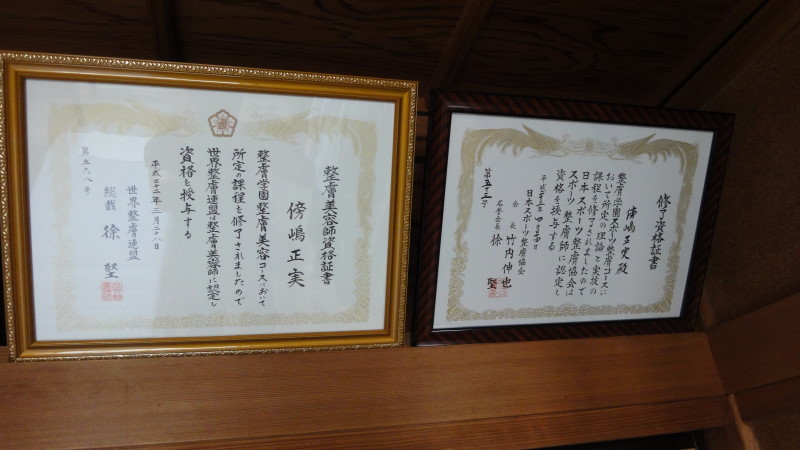 整膚美容師資格証書
傍嶋正実
整膚学園整膚美容コースにおいて
所定の課程を修了されましたので
世界整膚連盟は整膚美容師に認定し
資格を授与する
平成二十二年三月二八日
世界整膚連盟
総裁 徐堅
第五六八号
修了資格証書
傍嶋正実殿
整膚学園スポーツ整膚コースに
おいて所定の理論と実技の
課程を修了されましたので
日本スポーツ整膚協会は
スポーツ整膚師に認定し
資格を授与する
日本スポーツ整膚協会
会長 竹内伸也
名誉会長 徐堅